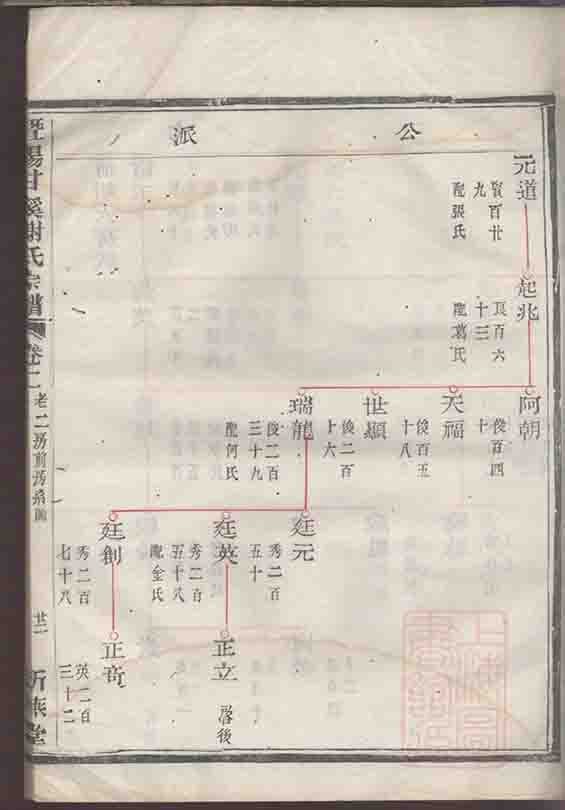 公派
元道
賢百廿
九
配張氏
起兆
良百六
十三
配葛氏
阿朝
俊百四
十
天福
俊百五
十八
世顯
俊二百
十六
瑞龍
俊二百
三十九
配何氏
廷元
秀二百
五十
廷英
秀二百
五十八
配金氏
廷創
秀二百
七十八
正立
啓後
正
英二百
三十二
暨陽甘溪謝氏宗譜
卷二
老二房前房系圖
廿一
上海圖書館藏